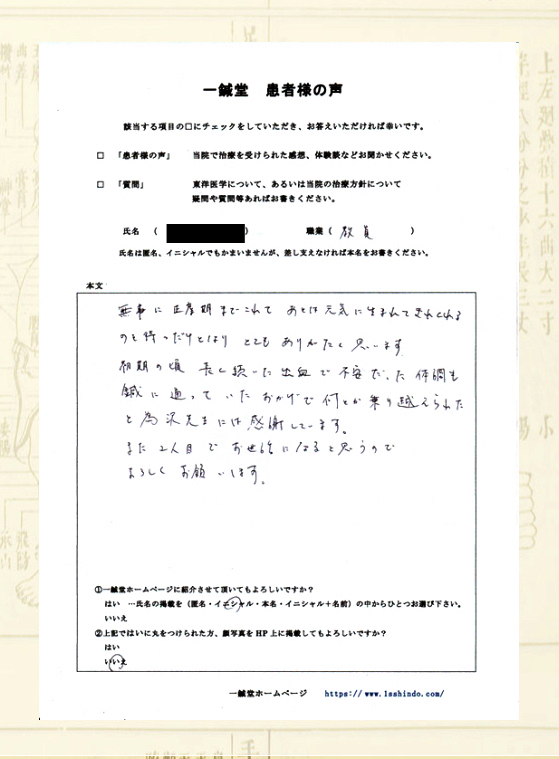 一鍼堂 患者様の声
該当する項目の□にチェックをしていただき、お答えいただければ幸いです。
□ 「患者様の声」 当院で治療を受けられた感想、体験談などお聞かせください。
□ 「質問」 東洋医学について、あるいは当院の治療方針について
疑問や質問等あればお書きください。
氏名 ( ) 職業 ( 教員 )
氏名は匿名、イニシャルでもかまいませんが、差し支えなければ本名をお書きください。
本文
無事に正産期までこれて あとは元気に生まれてきてくれる
のを待つだけとなり とてもありがたく思います
初期の頃 長く続いた出血で不安だった体調も
鍼に通っていたおかげで何とか乗り越えられた
と 先生には感謝しています。
また2人目でお世話になると思うので
よろしくお願いします。
①一鍼堂ホームページに紹介させて頂いてもよろしいですか?
はい …氏名の掲載を(匿名・イニシャル・本名・イニシャル+名前)の中からひとつお選び下さい。
いいえ
②上記ではいに丸をつけられた方、顔写真をHP上に掲載してもよろしいですか?
はい
いいえ
一鍼堂ホームページ https://www.1sshindo.com/